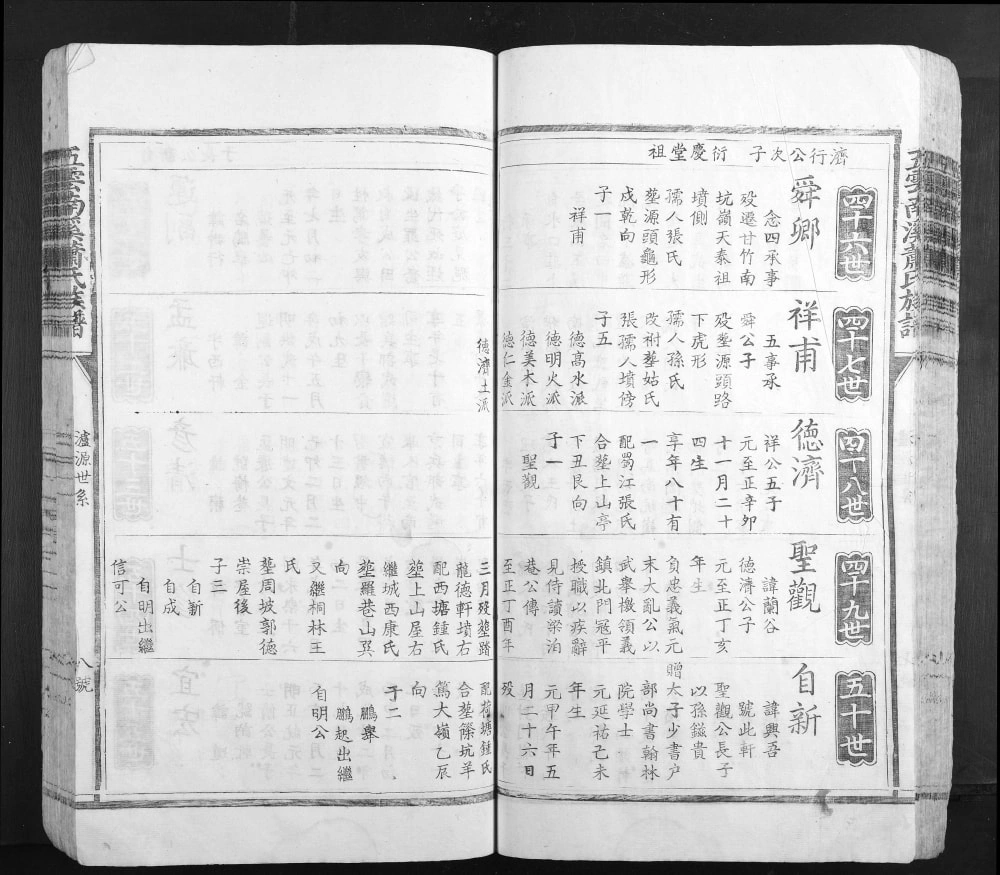 濟行公次子 衍慶堂祖
四十六世
舜卿
念四承事
歿遷甘竹南
坑嶺天泰祖
墳側
孺人張氏
塟源頭龜形
戌乾向
子一
祥甫
四十七世
祥甫
五事承
舜公子
歿塟源頭路
下虎形
孺人孫氏
改祔塟姑氏
張孺人墳傍
子五
德高水派
德明火派
德美木派
德仁金派
德濟土派
四十八世
德濟
祥公五子
元至正辛卯
十一月二十
四生
享年八十有
一
配蜀江張氏
合塟上山亭
下丑艮向
子一
聖觀
四十九世
聖觀
諱蘭谷
德濟公子
元至正丁亥
年生
負忠義氣元
末大亂公以
武舉檄領義
鎮北門冠平
授職以疾辭
見侍讀梁泊
巷公傳
至正丁酉年
三月歿塟踏
龍德軒墳右
配西塘鍾氏
塟上山屋右
繼城西康氏
塟羅巷山巽
向
又繼桐林王
氏
塟周坡郭德
崇屋後
子三
自新
自成
自明出繼
信可公
五十世
自新
諱興吾
號此軒
聖觀公長子
以孫鎡貴
贈太子少書户
部尚書翰林
院學士
元延祐己未
年生
元甲午年五
月二十六日
歿
配荷塘鍾氏
合塟篠坑羊
篤大嶺乙辰
向
子二
鵬舉
鵬起出繼
自明公
五雲南溪蕭氏族譜
瀘源世系
八號